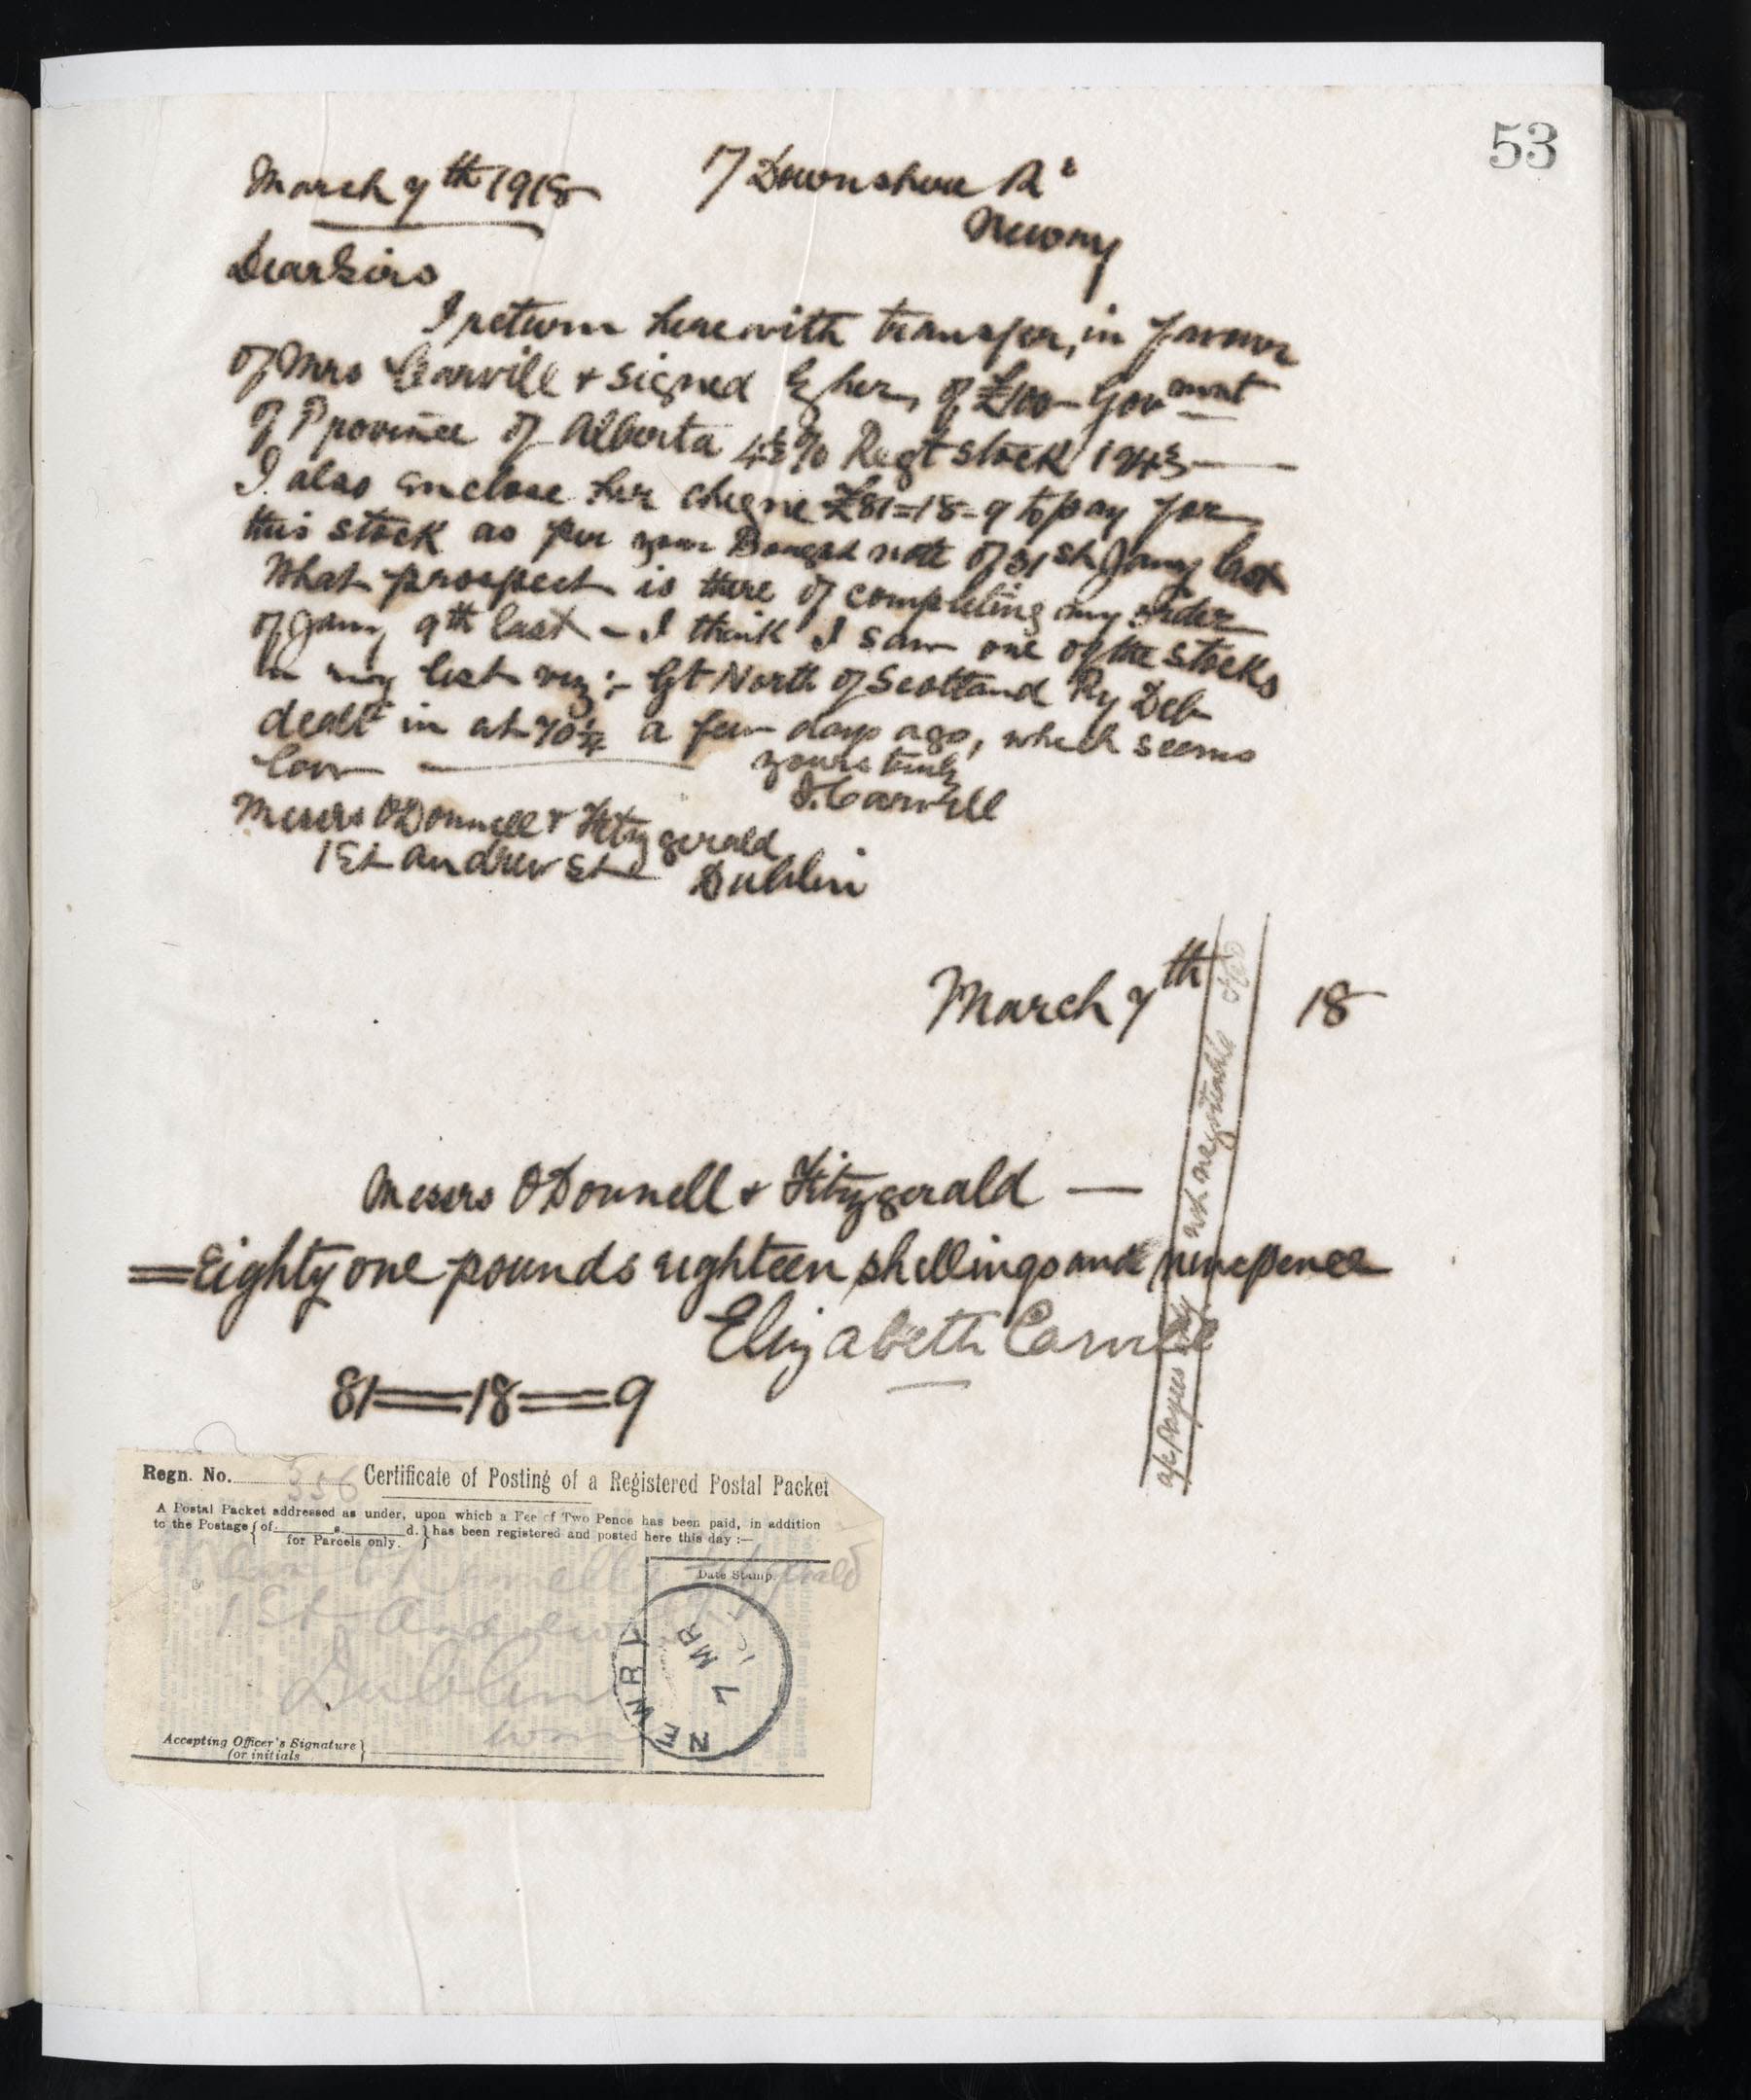 53
March 7th 1918 7 Downshire Rd
Newry
Dear Sirs
I return herewith transfer, in favour
of Mrs Carvill & signed by her, of £100 Govmnt
of Province of Alberta 4½% Regt stock 1943
I also enclose her cheque £81=18=9 to pay for
this stock as per your Bought note of 31st Jany last
What prospect is there of completing my order
of Jany 9th last – I think I saw one of the stocks
in my list viz:- Gt North of Scotland Ry Deb
dealt in at 70¼ a few days ago, which seems
low yours truly
J. Carvill
Messrs O'Donnell & Fitzgerald
1 St Andrew St
Dublin
March 7th 18
Messrs O'Donnell & Fitzgerald —
=Eighty one pounds eighteen shillings and ninepence
Elizabeth Carvill
81=18=9
a/c Payees only not negotiable
Regn. No. 556 Certificate of Posting of a Registered Postal Packet
A Postal Packet addressed as under, upon which a Fee of Two Pence has been paid, in addition
to the Postage {of s. d.} has been registered and posted here this day :—
for Parcels only.
Date Stamp.
O'Donnell Fitzgerald
1 St Andrew St
Dublin
NEWRY
7 MR
Accepting Officer's Signature}
(or initials